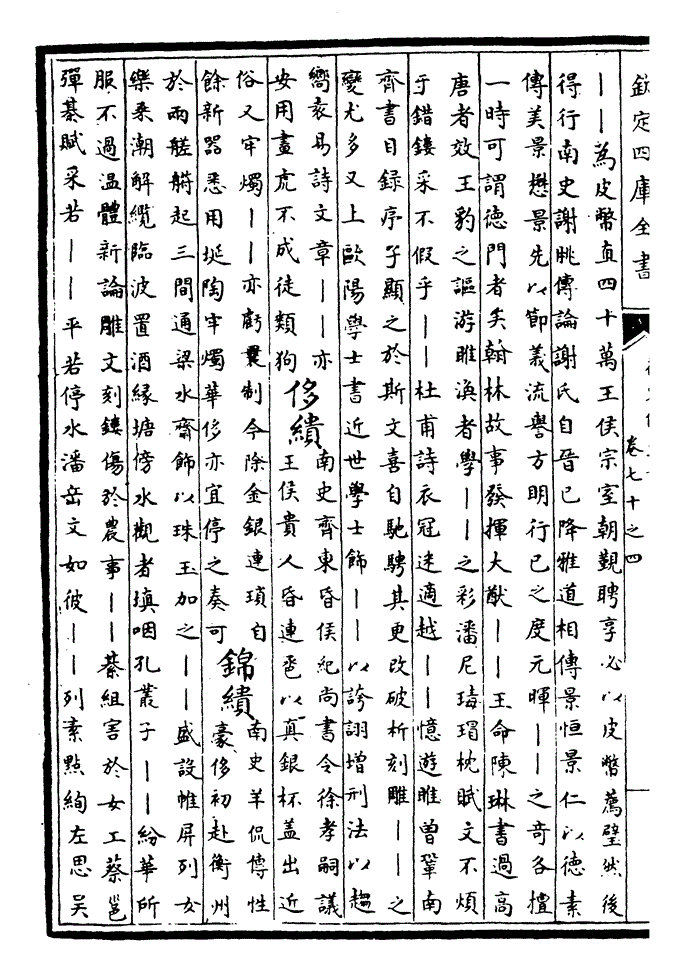 欽定四庫全書
卷七十之四
――為皮幣直四十萬王侯宗室朝覲聘享必以皮幣薦璧然後
得行南史謝朓傳論謝氏自晉已降雅道相傳景恒景仁以德素
傳美景懋景先以節義流譽方明行已之度元暉――之奇各擅
一時可謂德門者矣翰林故事發揮大猷――王命陳琳書過高
唐者效王豹之謳游睢渙者學――之彩潘尼瑇瑁枕賦文不煩
于錯鏤采不假乎――杜甫詩衣冠迷適越――憶遊睢曾鞏南
齊書目録序子顯之於斯文喜自馳騁其更改破析刻雕――之
變尤多又上歐陽學士書近世學士飾――以誇詡增刑法以趨
嚮袁易詩文章――亦
安用畫虎不成徒類狗
侈繢
南史齊東昏侯紀尚書令徐孝嗣議
王侯貴人昏連巹以真銀杯蓋出近
俗又牢燭――亦虧曩制今除金銀連瑣自
餘新器悉用埏陶牢燭華侈亦宜停之奏可
錦繢
南史羊侃傳性
豪侈初赴衡州
於兩艖䑀起三間通梁水齋飾以珠玉加之――盛設帷屏列女
樂乘潮解纜臨波置酒縁塘傍水觀者填咽孔叢子――紛華所
服不過温體新論雕文刻鏤傷於農事――綦組害於女工蔡邕
彈棊賦采若――平若停水潘岳文如彼――列素點絢左思吳